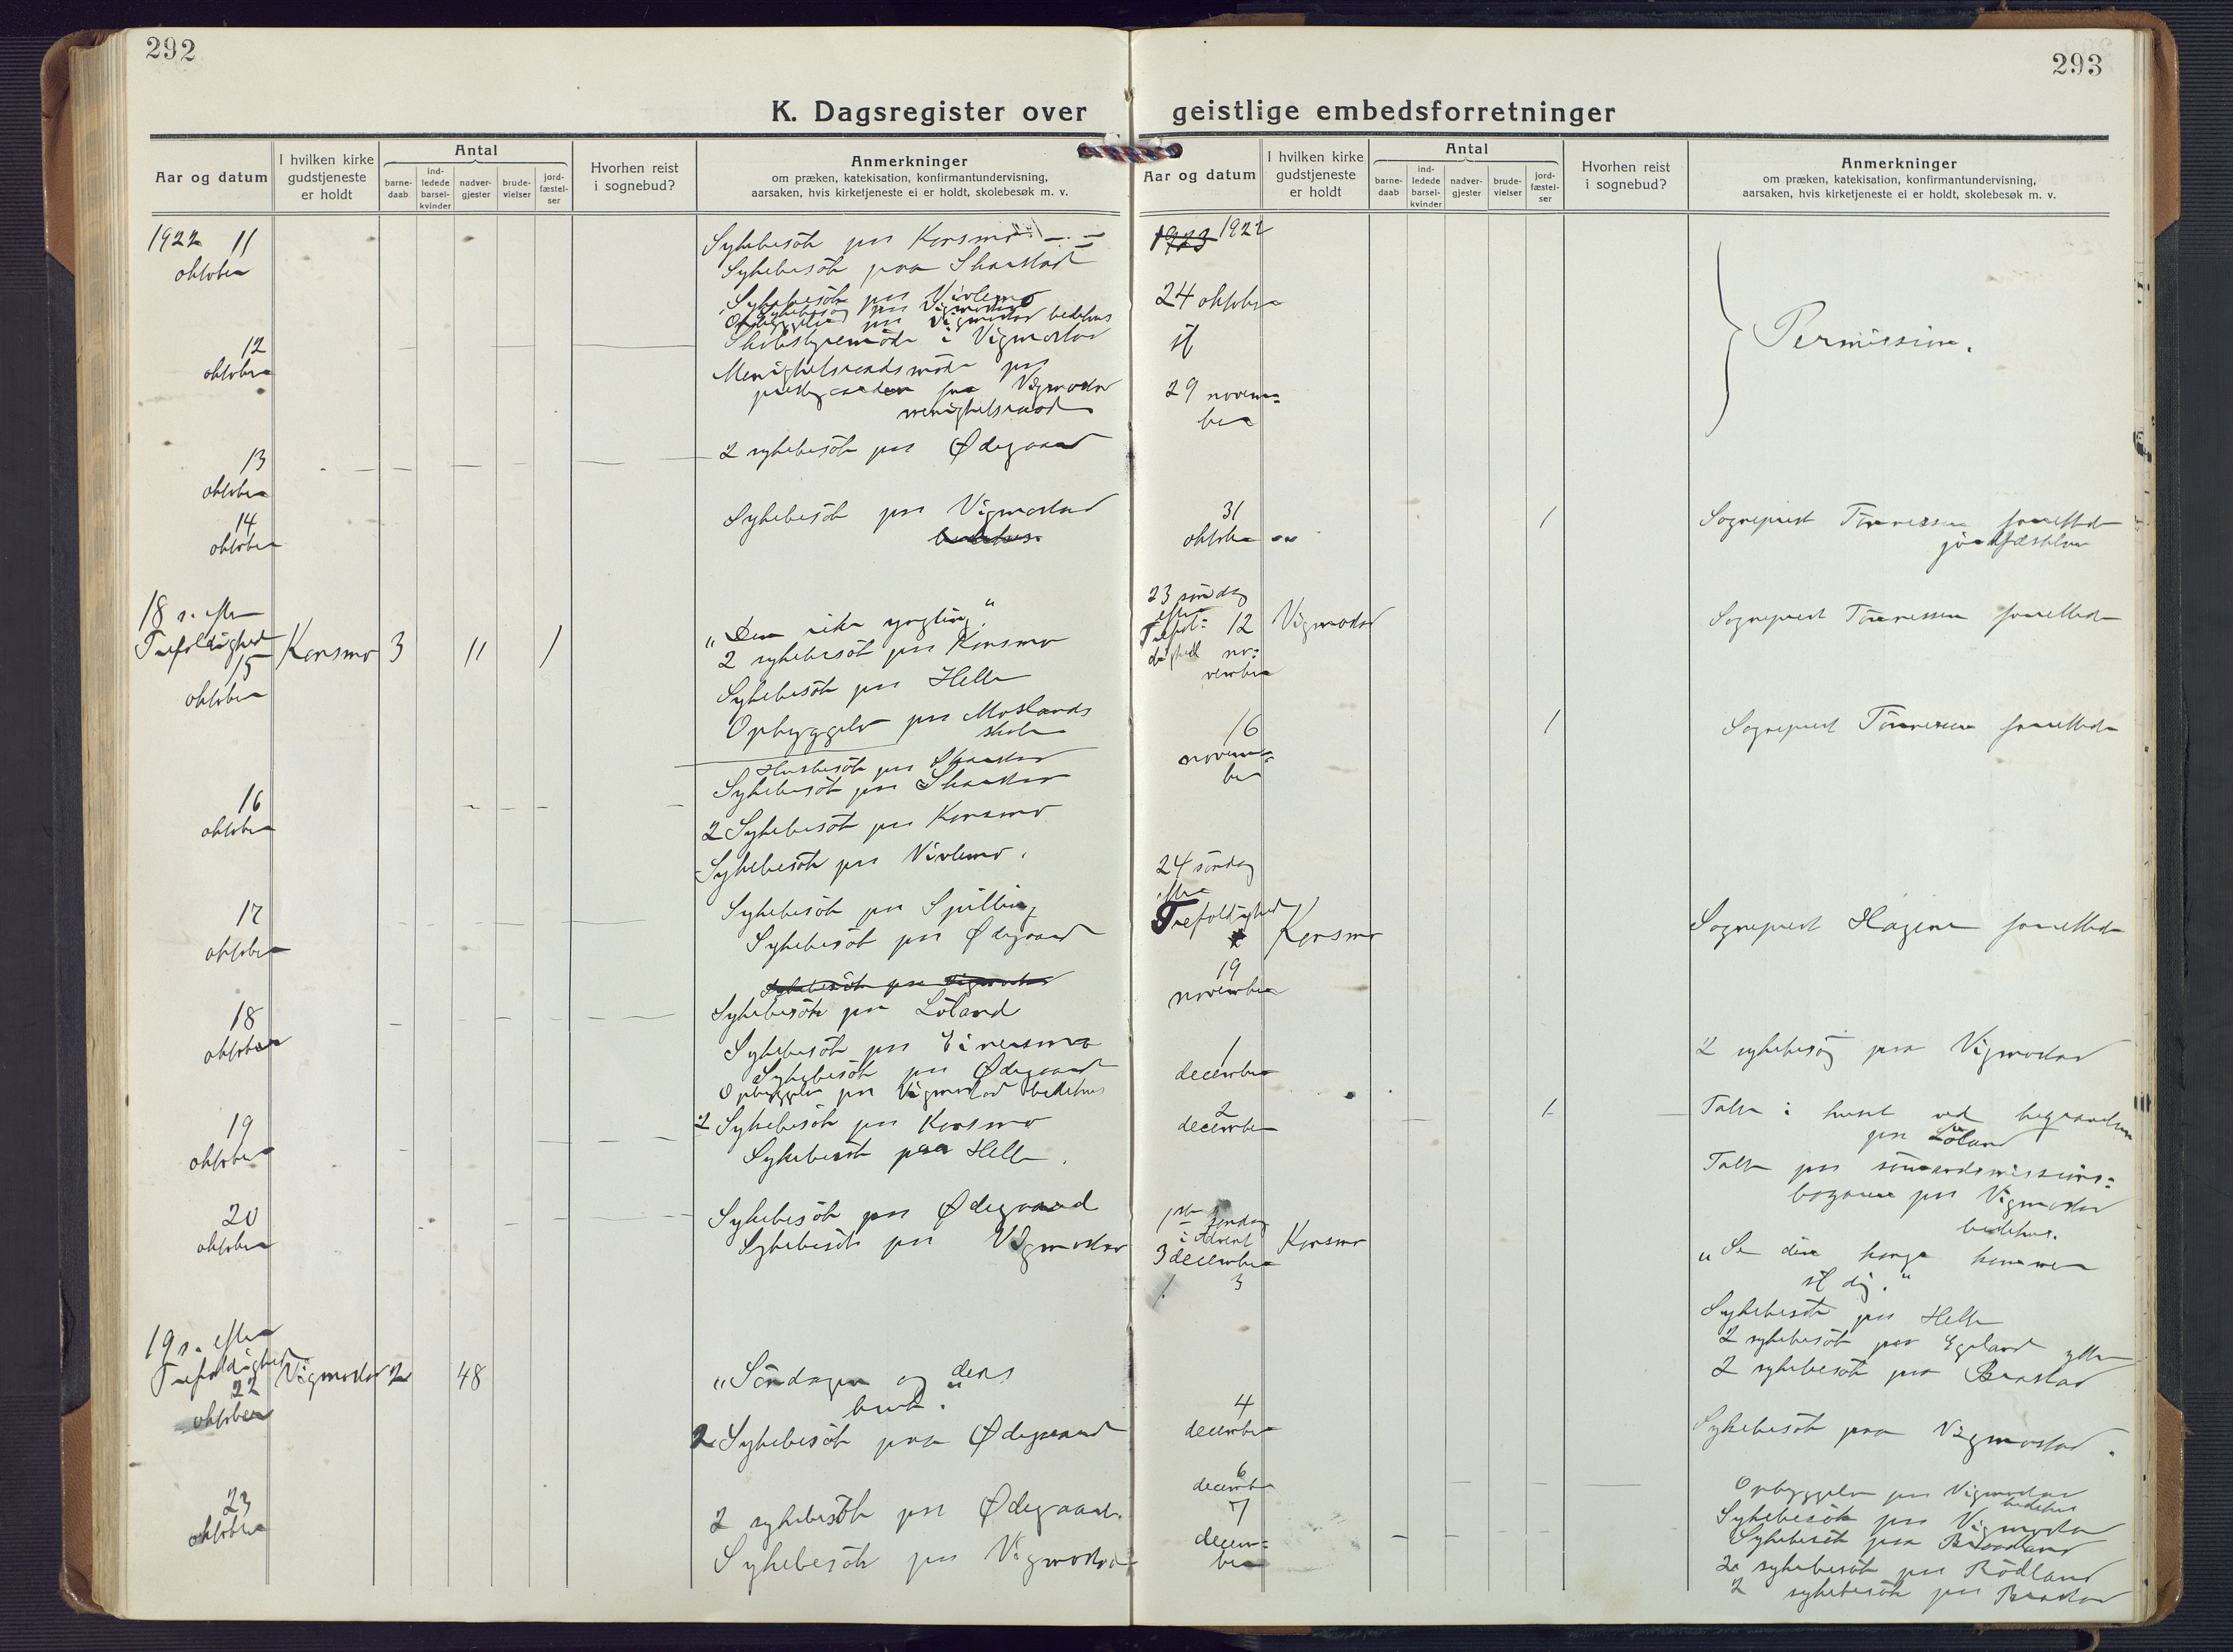 292
K. Dagsregister over
Aar og datum
I hvilken kirke
gudstjeneste
er holdt
Antal
barne-
daab
ind-
ledede
barsel-
kvinder
nadver-
gjester
brude-
vielser
jord-
fæstel-
ser
Hvorhen reist
i sognebud?
Anmerkninger
om præken, katekisation, konfirmantundervisning,
aarsaken, hvis kirketjeneste ei er holdt, skolebesøk m. v.
1922 11
oktober
Sykebesök paa Konsmo
Sykebesök paa Skarstad
Sykebesök paa Vivlemo
Opbyggelse paa Vigmostad bedehus
12
oktober
Skolestyremöde i Vigmostad
Menighetsraadsmöde paa
prestegaarden for Vigmostad
menighetsraad
13
oktober
2 sykebesök paa Ødegaard
14
oktober
Sykebesök paa Vigmostad
bedehus.
18 s. efter
Trefoldighed
15
oktober
Konsmo 3 11 1
"Den rike yngling."
2 sykebesök paa Konsmo
Sykebesök paa Helle
Opbyggelse paa Moslands
skole
Husbesök paa Skarstad
16
oktober
Sykebesök paa Skarstad
2 Sykebesök paa Konsmo
Sykebesök paa Vivlemo.
17
oktober
Sykebesök paa Spilling
Sykebesök paa Ødegaard
Sykebesök paa Vigmostad
18
oktober
Sykebesök paa Löland
Sykebesök paa Einersmo
Sykebesök paa Ødegaard
Opbyggelse paa Vigmostad bedehus
19
oktober
2 Sykebesök paa Konsmo
Sykebesök paa Helle.
20
oktober
Sykebesök paa Ødegaard
Sykebesök paa Vigmostad
19 s. efter
Trefoldighed
22
oktober
Vigmostad 2 48
"Söndagen og dens
bruk."
2 Sykebesök paa Ødegaard
23
oktober
2 sykebesök paa Ødegaard.
Sykebesök paa Vigmostad
293
geistlige embedsforretninger
Aar og datum
I hvilken kirke
gudstjeneste
er holdt
Antal
barne-
daab
ind-
ledede
barsel-
kvinder
nadver-
gjester
brude-
vielser
jord-
fæstel-
ser
Hvorhen reist
i sognebud?
Anmerkninger
om præken, katekisation, konfirmantundervisning,
aarsaken, hvis kirketjeneste ei er holdt, skolebesøk m. v.
1923 1922
24 oktober
til
29 novem=
ber
Permission.
31
oktober
1
Sogneprest Tönnessen forrettede
jordfæstelsen
23 söndag
efter
Trefol= 12
dighed no=
vember
Vigmostad
Sogneprest Tönnessen forrettede
16
novem=
ber
1
Sogneprest Tönnessen forrettede
24 söndag
efter
Trefoldighed
19
november
Konsmo
Sogneprest Hagene forrettede
1
december
2 sykebesög paa Vigmostad
2
december
1
Talte i huset ved begravelsen
paa Löland
Talte paa sömandsmissions=
bazaren paa Vigmostad
bedehus.
1ste söndag
i Advent
3 december
3
Konsmo
"Se din konge kommer
til dig."
Sykebesök paa Helle
2 sykebesök paa Egeland ytre
2 sykebesök paa Brastad
4
december
Sykebesök paa Vigmostad.
6
december
Opbyggelse paa Vigmostad
bedehus
7
decem=
ber
Sykebesök paa Vigmostad
Sykebesök paa
2 sykebesök paa Rödland
2 sykebesök paa Brastad